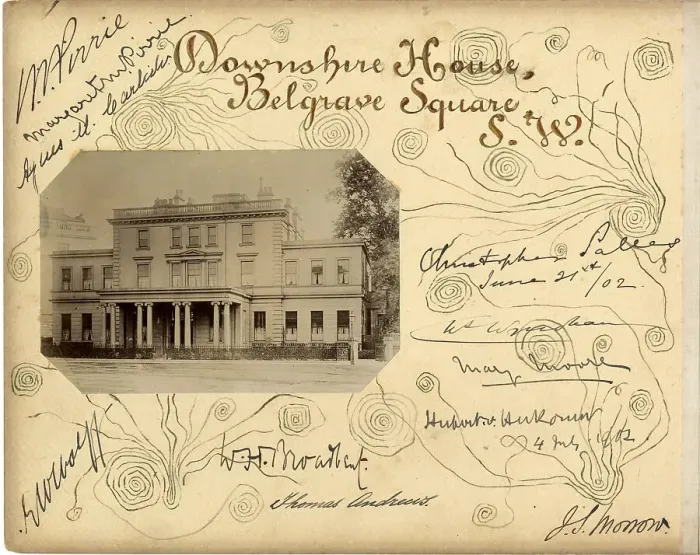 W. J. Pirrie
Margaret M Pirrie
Agnes M. Carlisle
Downshire House,
Belgrave Square
S. W.
Christopher Palles
June 21st/02.
Wm Wyndham
Mary Moore
Hubert v. Herkomer
4 July 1902
G W Wolff
W. H. Broadbent.
Thomas Andrews.
J. S. Morrow.